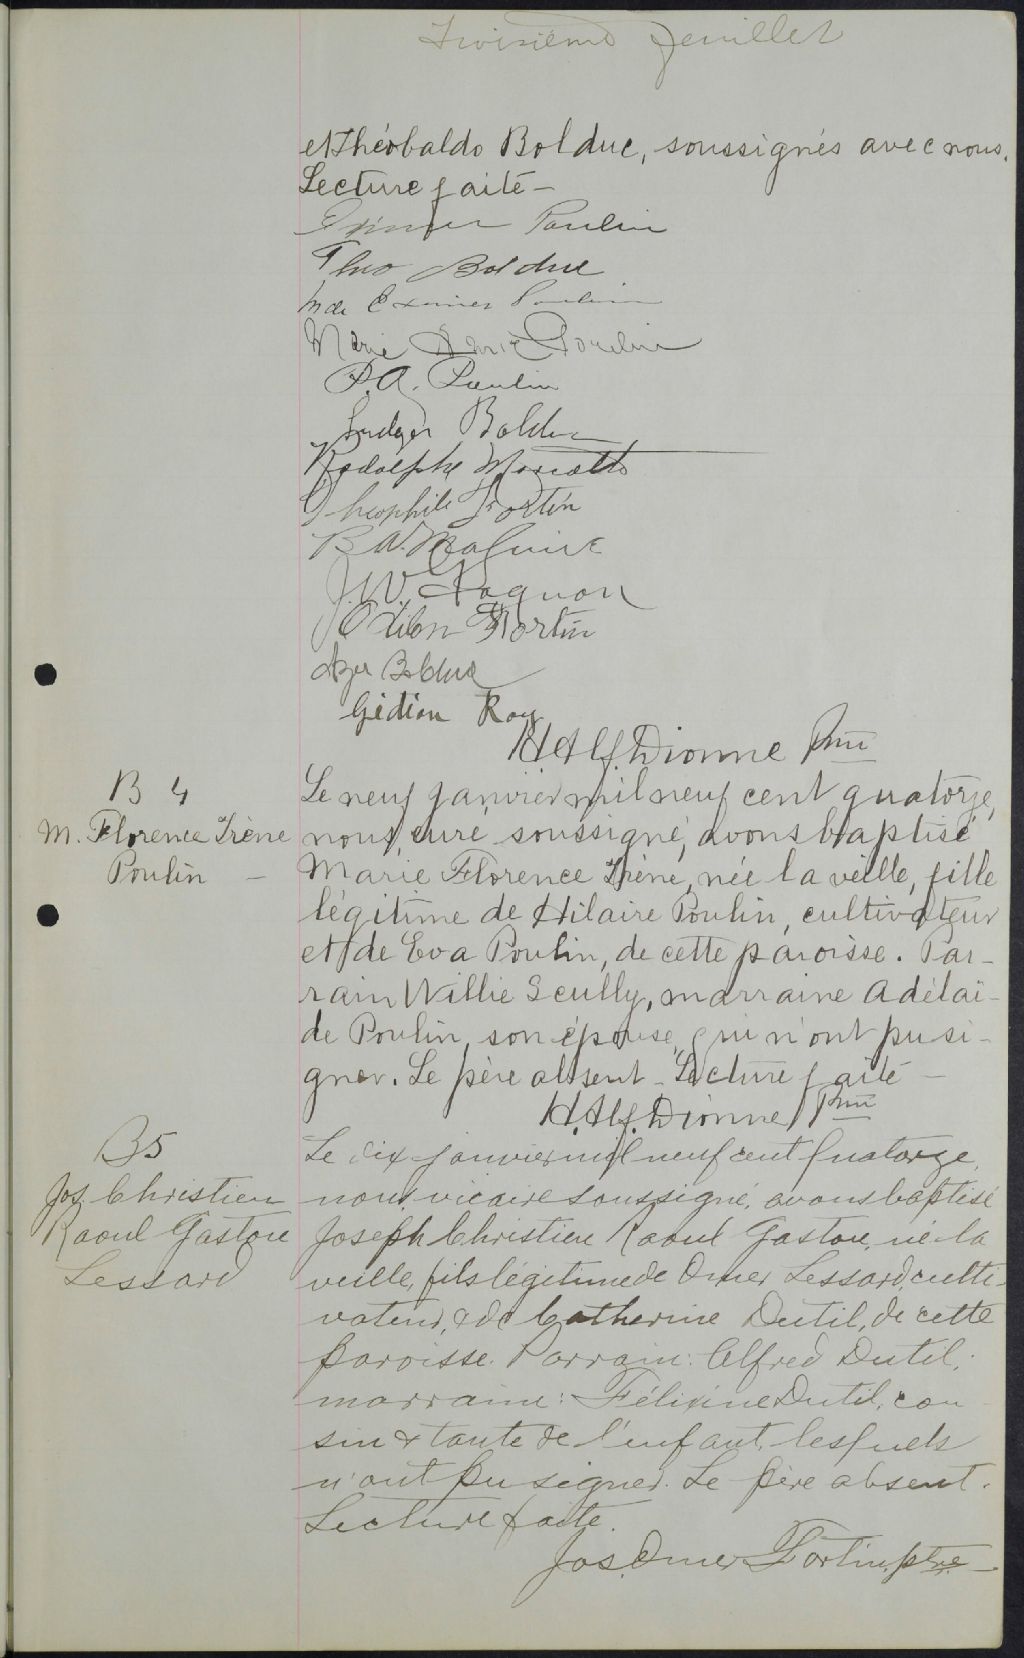 Troisième feuillet
et Théobaldo Bolduc, soussignés avec nous.
Lecture faite –
Poulin
Theo Bolduc
Poulin
Marie Poulin
P.A. Poulin
Ludger Bolduc
Rodolphe
Théophile Fortin
B W. Maguire
J.W. Gagnon
Odilon Fortin
Bolduc
Gédéon Roy
H. Alf. Dionne Ptre
B 4
M. Florence Irène
Poulin –
Le neuf janvier mil neuf cent quatorze,
nous, curé soussigné, avons baptisé
Marie Florence Irène, née la veille, fille
légitime de Hilaire Poulin, cultivateur
et de Eva Poulin, de cette paroisse. Par-
rain Willie Scully, marraine Adélaï-
de Poulin, son épouse, qui n'ont pu si-
gner. Le père absent – Lecture faite –
H. Alf. Dionne Ptre
B5
Jos. Christien
Raoul Gaston
Lessard
Le dix janvier mil neuf cent quatorze,
nous, vicaire soussigné, avons baptisé
Joseph Christien Raoul Gaston, né la
veille, fils légitime de Omer Lessard, culti-
vateur, & de Catherine Dutil, de cette
paroisse. Parrain: Alfred Dutil;
marraine: Félixine Dutil, cou
sin & tante de l'enfant, lesquels
n'ont pu signer. Le père absent.
Lecture faite.
Jos. Omer Fortin, ptre